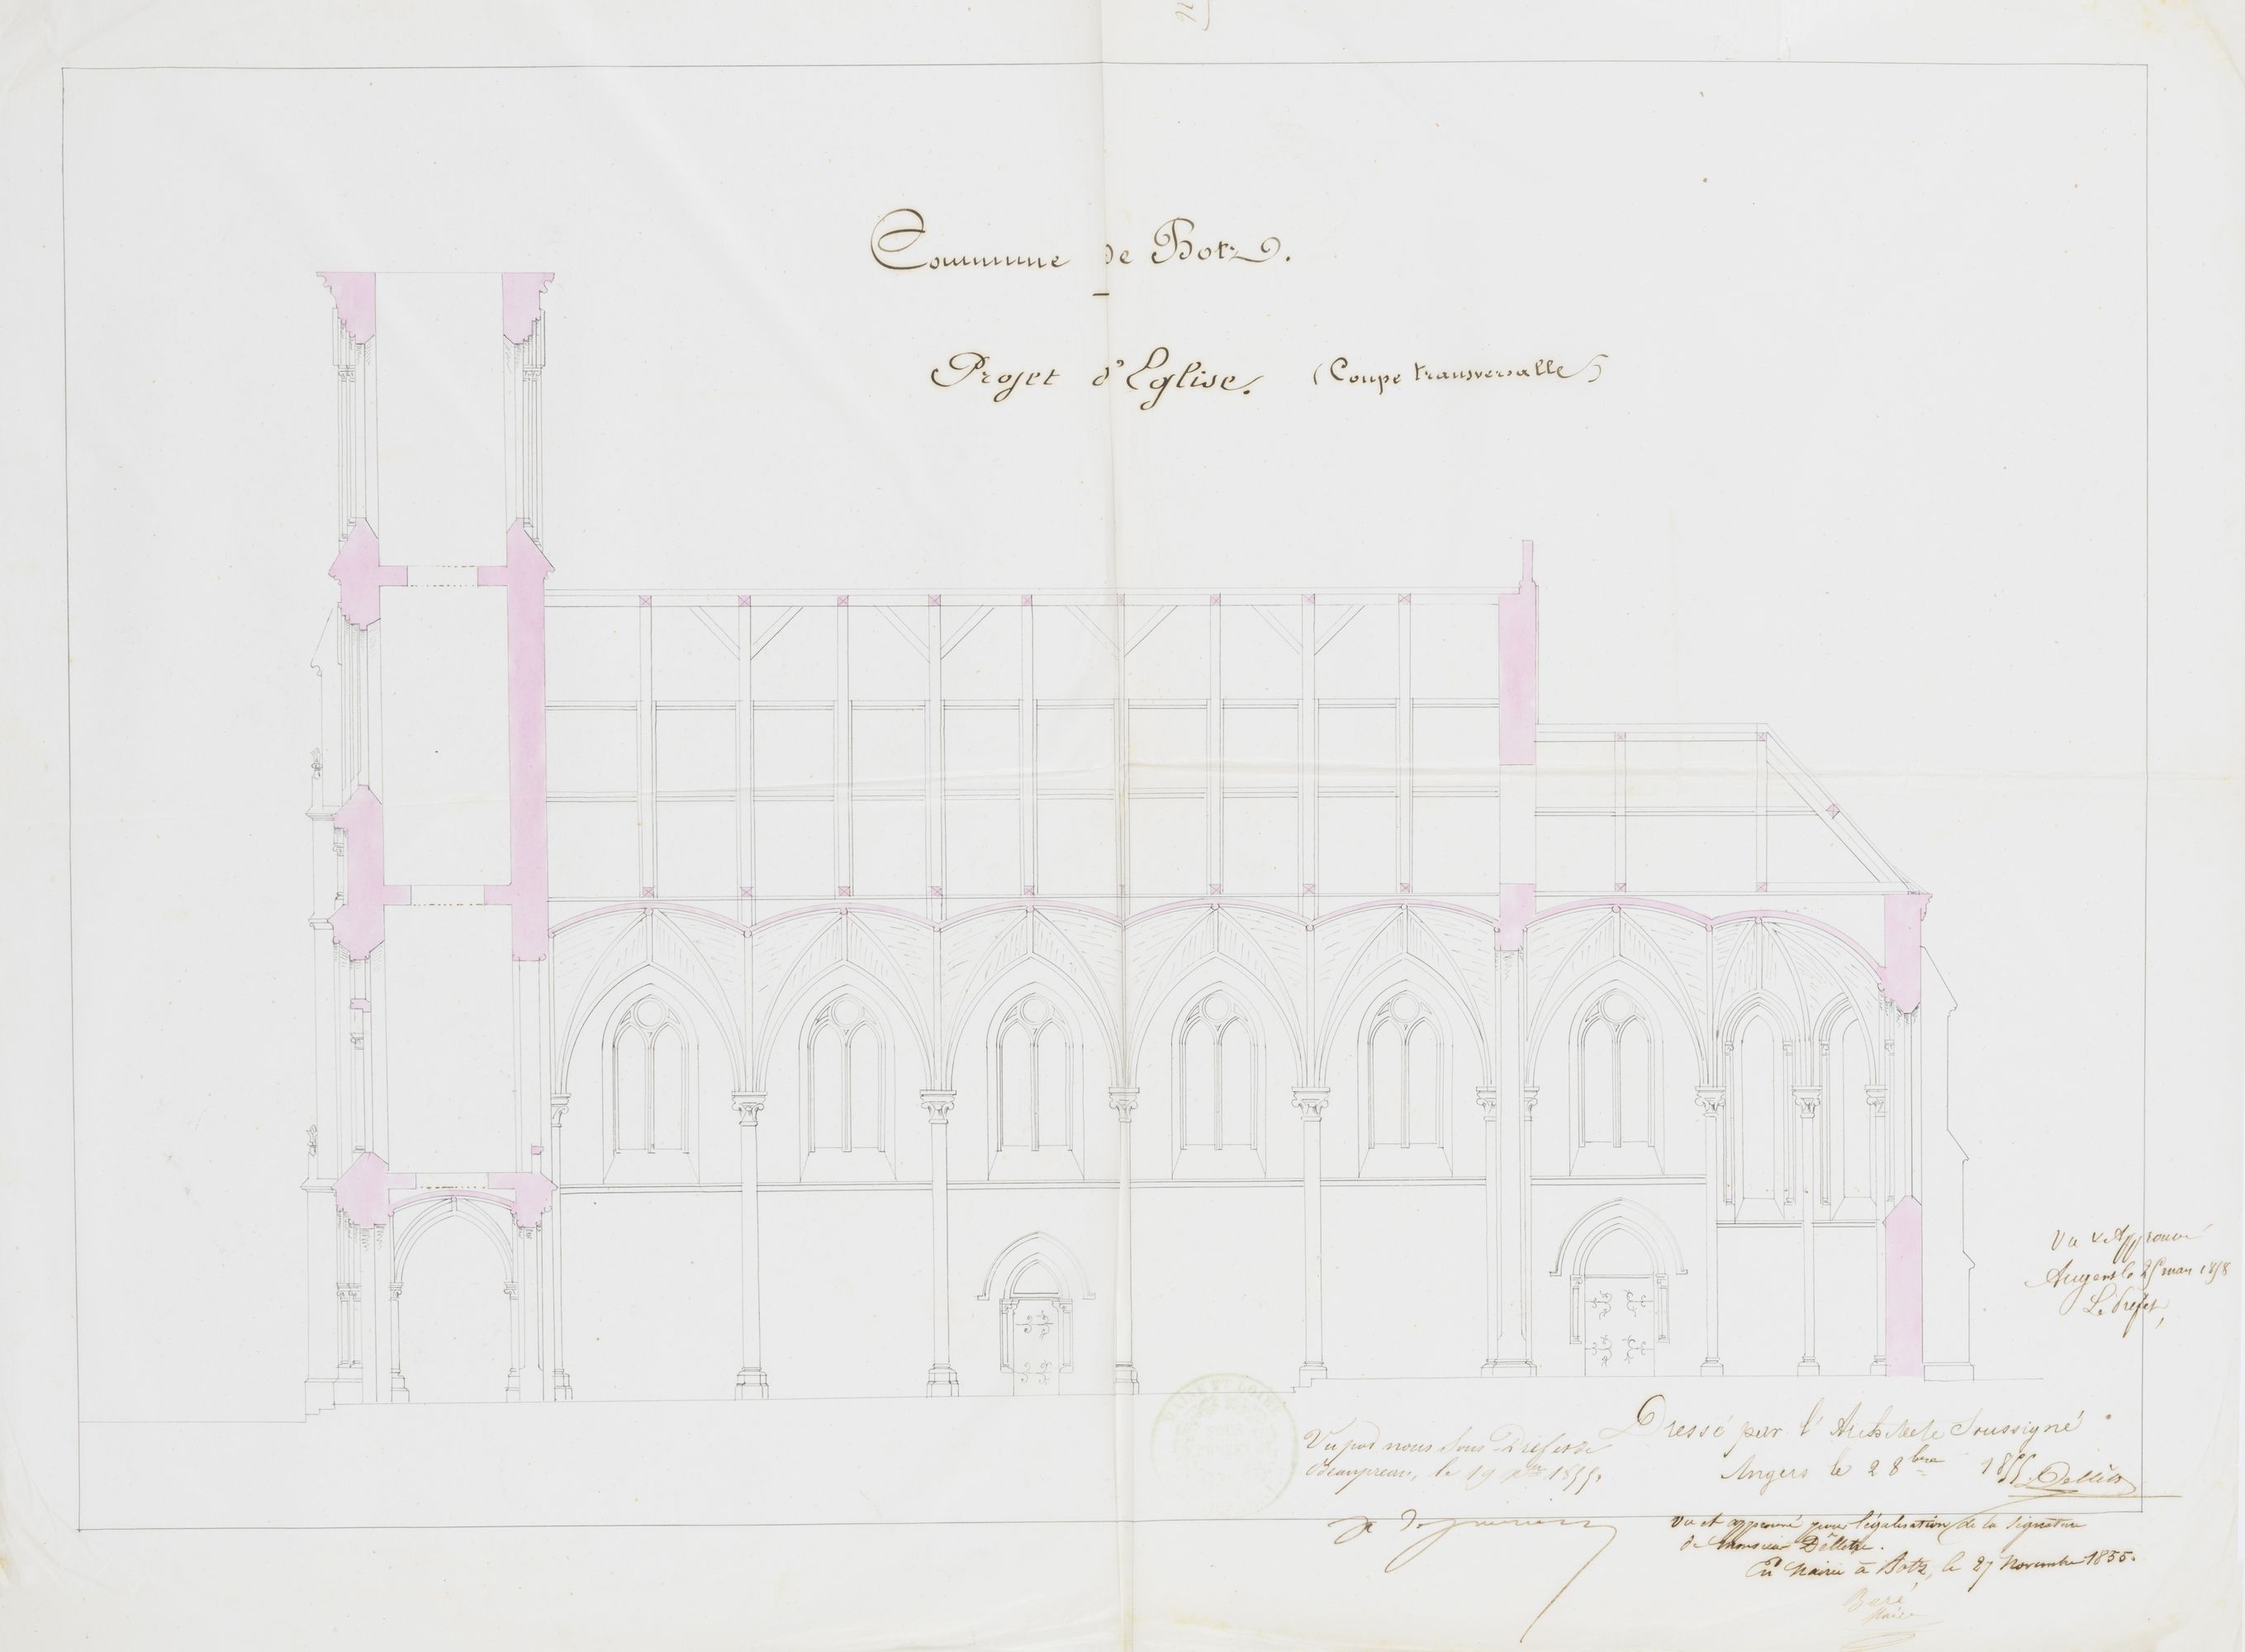 Commune de Botz.
Projet d'Eglise. (Coupe transversalle)
Vu & Approuvé
Angers le 25 mars 1858
Le Préfet,
Dressé par l'Architecte Soussigné
Angers le 2 8bre 1855. Dellêtre
Vu par nous Sous Préfet de
Beaupreau, le 19 Xbre 1855.
Vu et approuvé pour légalisation de la signature
de Monsieur Dellêtre.
En Mairie à Botz, le 27 Novembre 1855.
Maire